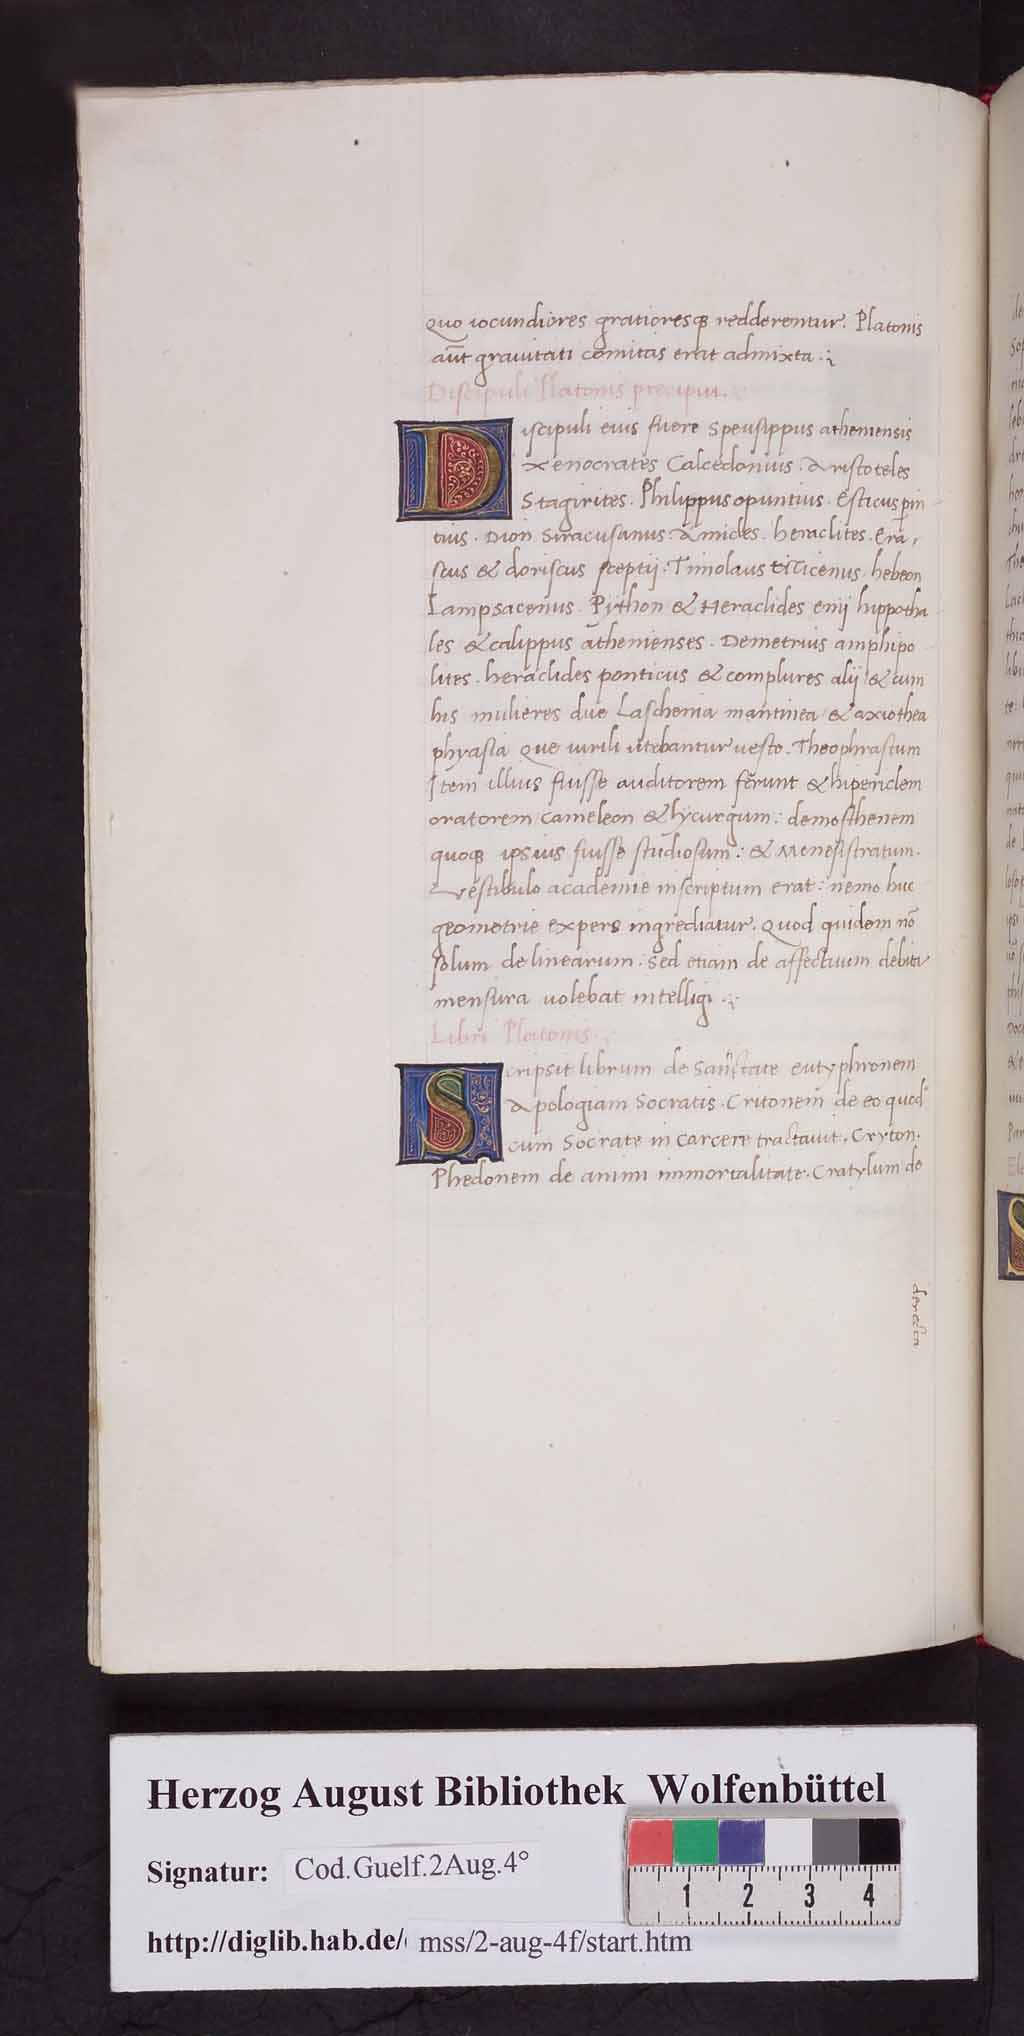 quo iocundiores gratioresqꝫ redderentur. Platonis
aūt grauitati comitas erat admixta.
Discipuli Platonis precipui.
Discipuli eius fuere Speusippus atheniensis
Xenocrates Calcedonius. Aristoteles
Stagirites. Philippus opuntius. Esticus perin
tius. Dion Siracusanus: Amides. heraclites. Era,
stus & doriscus sceptij: Timolaus titicenus. hebeon
Lampsacenus. Python & Heraclides enij hippotha
les & calippus athenienses. Demetrius amphipo
lites. heraclides ponticus & complures alij & cum
his mulieres due Laschenia mantinea & axiothea
phyasia que uirili utebantur ueste. Theophrastum
Item illius fuisse auditorem ferunt & hipericlem
oratorem cameleon & lycurgum: demosthenem
quoqꝫ ipsius fuisse studiosum: & Menesistratum.
Vestibulo academie inscriptum erat: nemo huc
geometrie expers ingrediatur. Quod quidem nō
solum de linearum: sed etiam de affectuum debita
mensura uolebat intelligi.
Libri Platonis.
Scripsit librum de Sanctate eutyphronem
Apologiam Socratis. Critonem de eo quod
cum Socrate in carcere tractauit. Cryton.
Phedonem de animi immortalitate. Cratylum de
de recta
Herzog August Bibliothek Wolfenbüttel
Signatur: Cod.Guelf.2Aug.4°
1 2 3 4
http://diglib.hab.de/ mss/2-aug-4f/start.htm